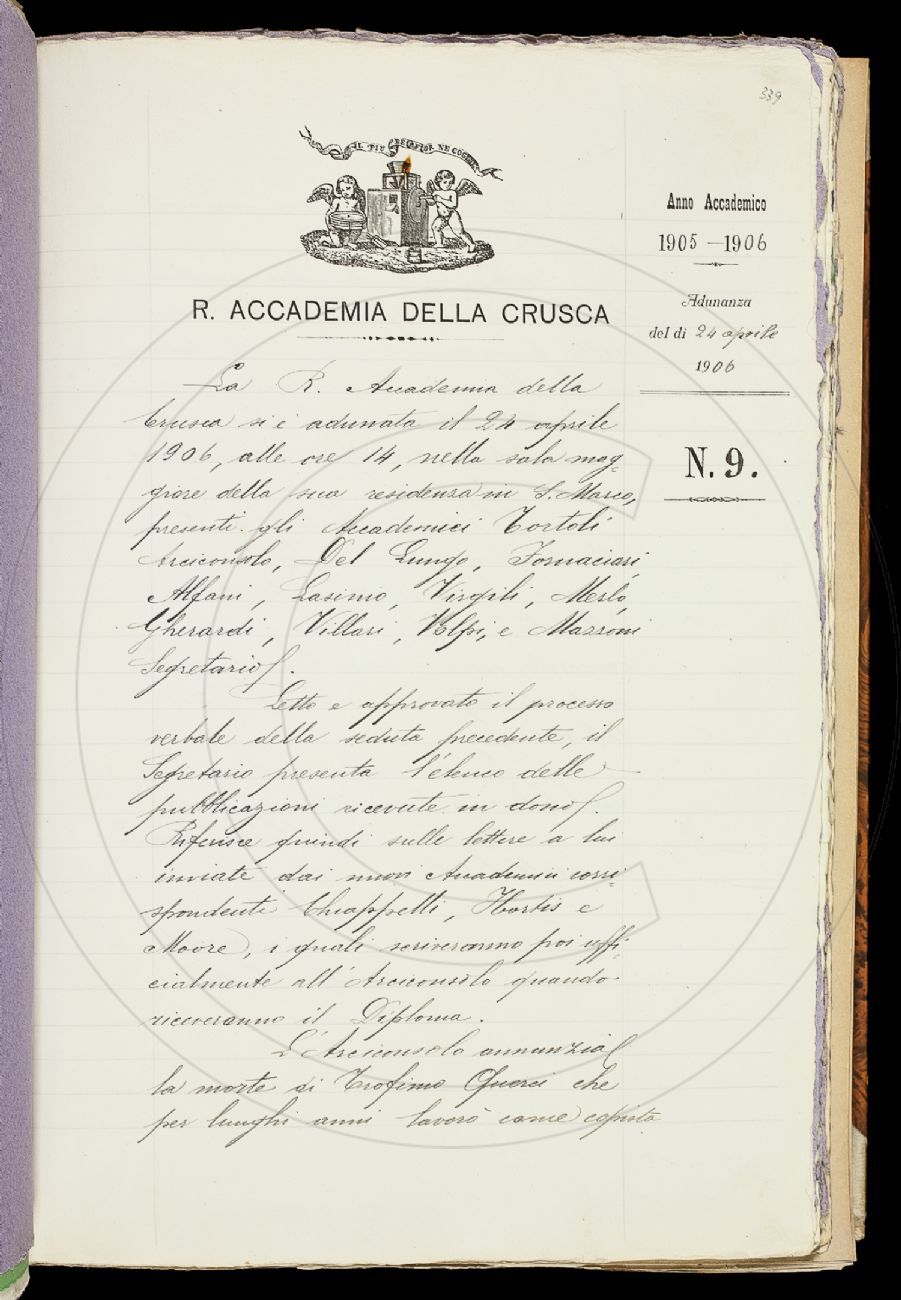 339
IL PIÙ BEL FIOR NE COGLIE
Anno Accademico
1905-1906
Adunanza
del dì 24 aprile
1906
N. 9.
R. ACCADEMIA DELLA CRUSCA
La R. Accademia della
Crusca si è adunata il 24 aprile
1906, alle ore 14, nella sala mag-
giore della sua residenza in S. Marco,
presenti gli Accademici Tortoli
Arciconsolo, Del Lungo, Fornaciari,
Alfani, Lasinio, Virgili, Merlo,
Gherardi, Villari, Volpi, e Mazzoni
Segretario.
Letto e approvato il processo
verbale della seduta precedente, il
Segretario presenta l'elenco delle
pubblicazioni ricevute in dono.
Riferisce quindi sulle lettere a lui
inviate dai nuovi Accademici corri-
spondenti Chiappelli, Hortis e
Moore, i quali scriveranno poi uffi-
cialmente all'Arciconsolo quando
riceveranno il Diploma.
L'Arciconsolo annunzia
la morte di Trofimo Querci che
per lunghi anni lavorò come copista